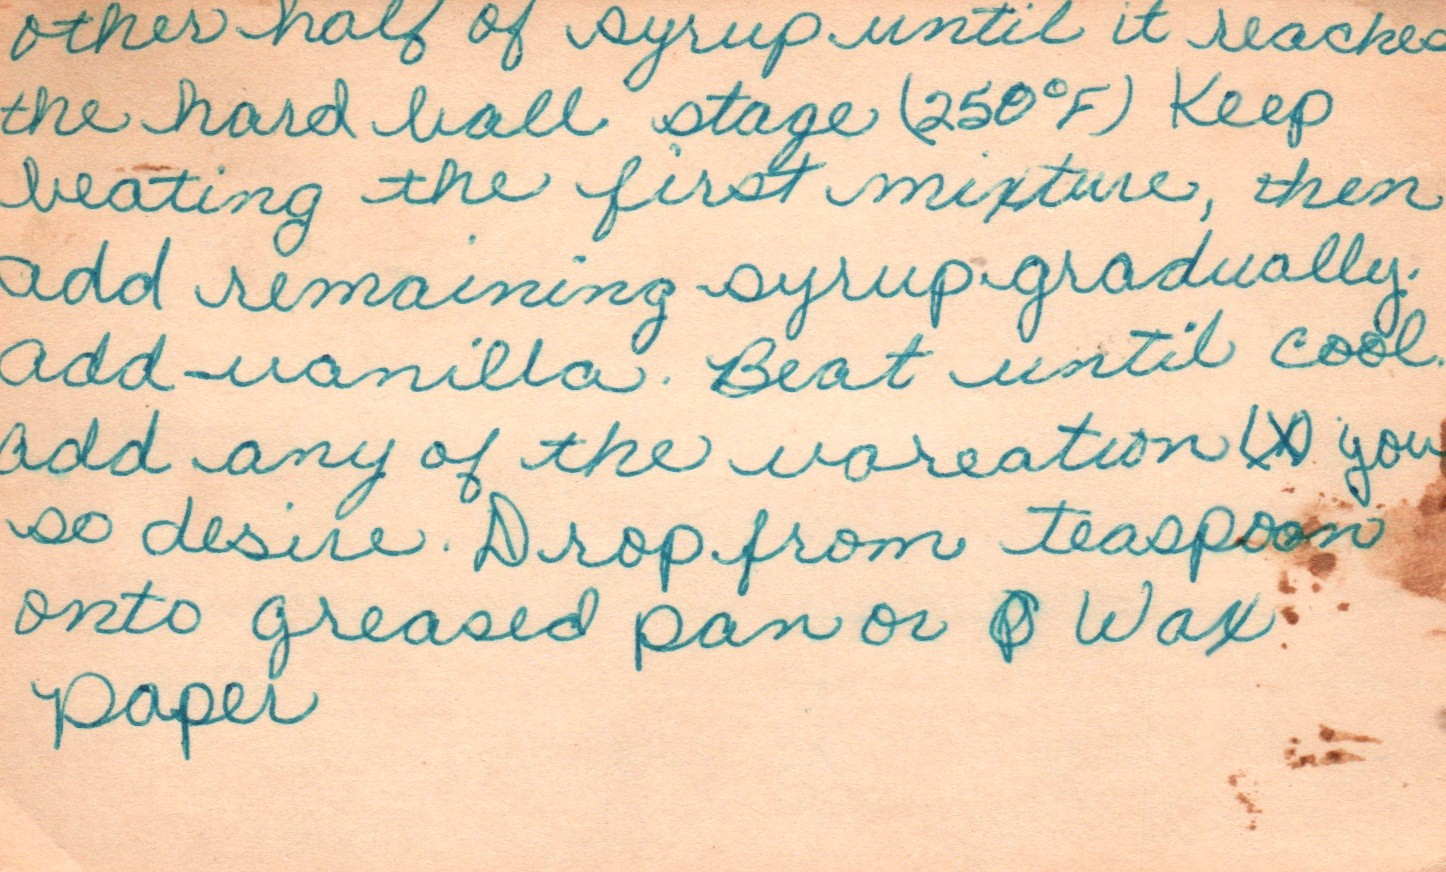 other half of syrup until it reaches
the hard ball stage (250°F) Keep
beating the first mixture, then
add remaining syrup gradually.
Add vanilla. Beat until cool.
Add any of the vareation you
so desire. Drop from teaspoon
onto greased pan or Wax
paper